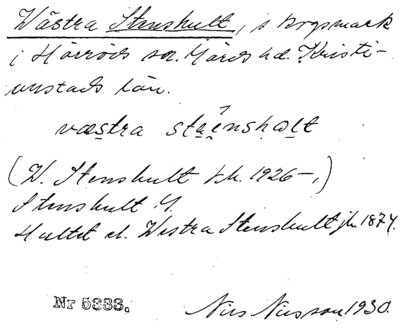 Västra Stenshult, i bygsmark
i Hörröds sn. Gärds hd. Kristi-
anstads län.
væstra stäensholt
(V. Stenshult tk. 1926–,)
Stenshult G.
Hultet el. Westra Stenshult jb. 1874.
Nr 5333. Nils Nilsson 1930.